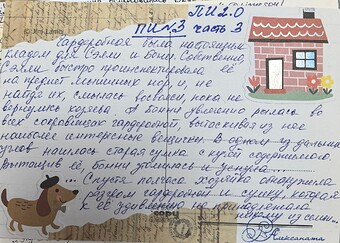 ПИ 2.0
ПИ №3 часть 3
Гардеробная была настоящим
кладом для Сэлли и Бонни. Собственно,
Сэлли быстро проинспектировала её
на предмет мышиных нор и, не
найдя их, смылась восвояси, пока не
вернулись хозяева. А Бонни увлечённо рылась во
всех сокровищах гардеробной, вытаскивая из нее
наиболее интересные вещички. В одном из дальних
углов нашлась старая сумка с кучей содержимого.
Вытащив её, Бонни улеглась и уснула...
... Спустя полчаса хозяйка обнаружила
разгром гардеробной и сумку, которая
к её удивлению не принадлежала
никому из семьи...